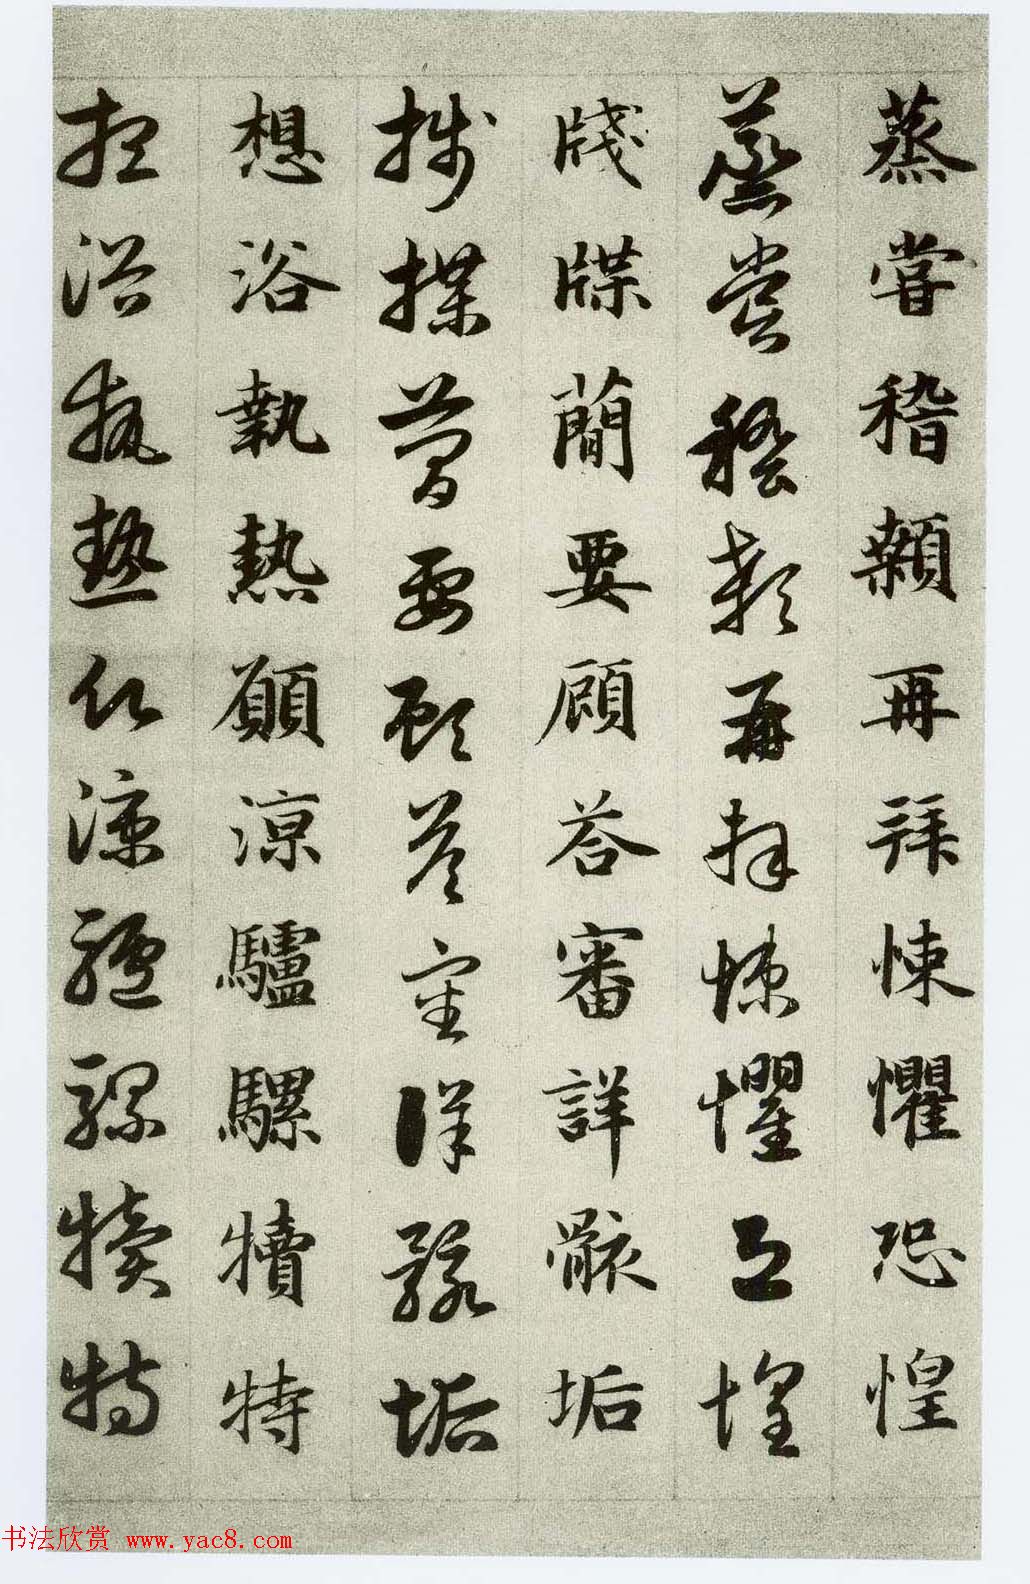 蒸嘗稽顙再拜悚懼恐惶
蒸嘗稽顙再拜悚懼恐惶
牋牒簡要顧答審詳骸垢
牋牒簡要顧答審詳骸垢
想浴執熱願涼驢騾犢特
想浴執熱願涼驢騾犢特
书法欣赏 www.yac8.com